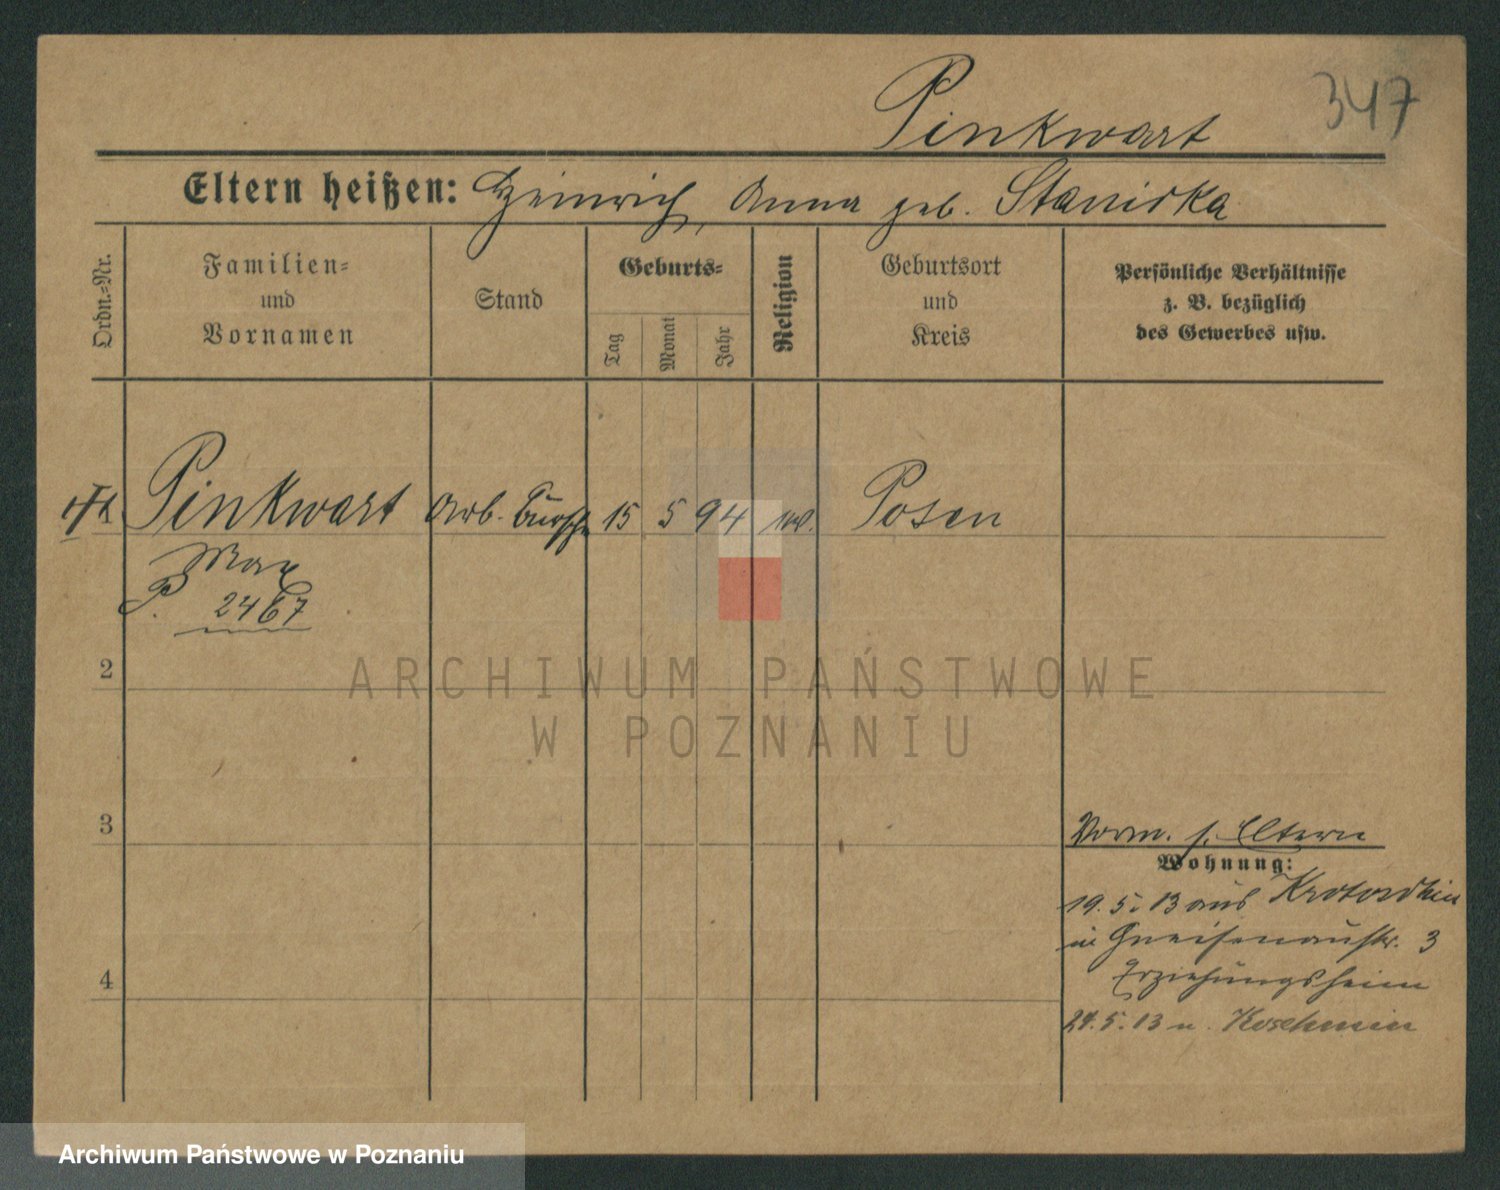 347
Pinkwart
Eltern heißen: Heinrich, Anna geb. Staniska
Ordn.-Nr.
Familien-
und
Vornamen
Stand
Geburts-
Tag
Monat
Jahr
Religion
Geburtsort
und
Kreis
Persönliche Verhältnisse
z. B. bezüglich
des Gewerbes usw.
1 Pinkwart Arb. Bursche 15 5 94 Posen
Max
P. 2467
2
3
4
Vorm. s. Eltern
Wohnung:
19. 5. 13 aus Krotoschin
in Gneisenaustr. 3
Erziehungsheim
24. 5. 13 n. Koschmin
ARCHIWUM PAŃSTWOWE
W POZNANIU
Archiwum Państwowe w Poznaniu